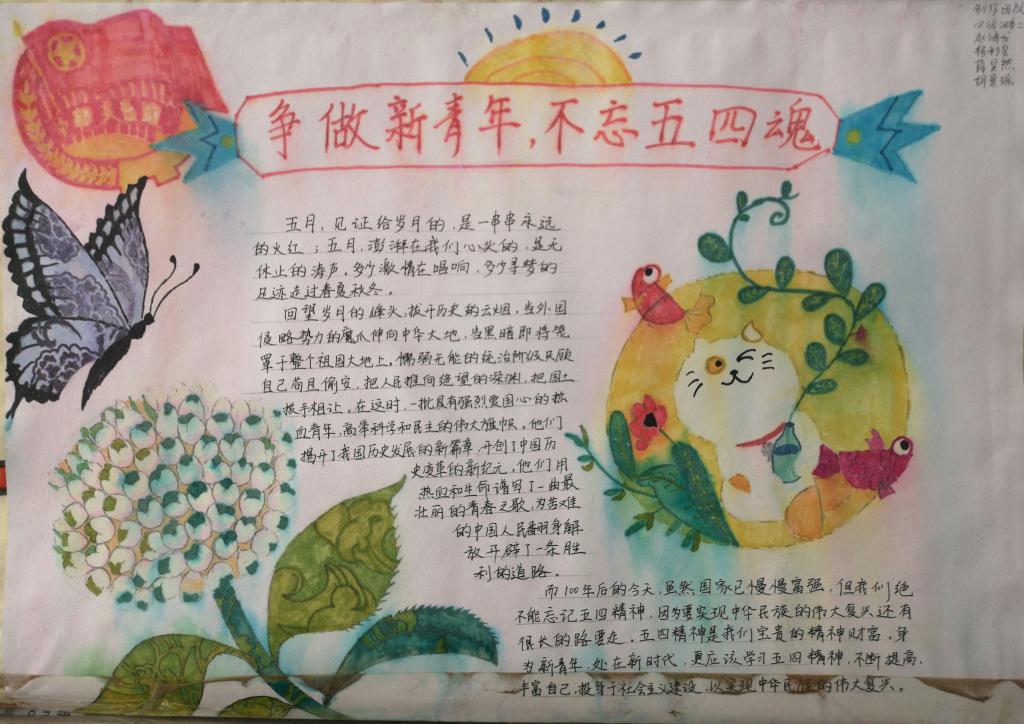 争做新青年，不忘五四魂
五月，见证给岁月的，是一串串永远
的火红；五月，澎湃在我们心头的，是无
休止的涛声。多少激情在唱响，多少寻梦的
足迹走过春夏秋冬。
回望岁月的峰头，拨开历史的云烟，当外国
侵略势力的魔爪伸向中华大地，当黑暗即将笼
罩于整个祖国大地上。懦弱无能的统治阶级只顾
自己苟且偷安，把人民推向绝望的深渊，把国土
拱手相让。在这时，一批具有强烈爱国心的热
血青年，高举科学和民主的伟大旗帜。他们
揭开了我国历史发展的新篇章，开创了中国历
史变革的新纪元，他们用
热血和生命谱写了一曲最
壮丽的青春之歌，为苦难
的中国人民翻身解
放开辟了一条胜
利的道路。
而100年后的今天，虽然国家已慢慢富强，但我们绝
不能忘记五四精神，因为要实现中华民族的伟大复兴还有
很长的路要走。五四精神是我们宝贵的精神财富，身
为新青年，处在新时代，更应该学习五四精神，不断提高，
丰富自己，投身于社会主义建设，以实现中华民族的伟大复兴。